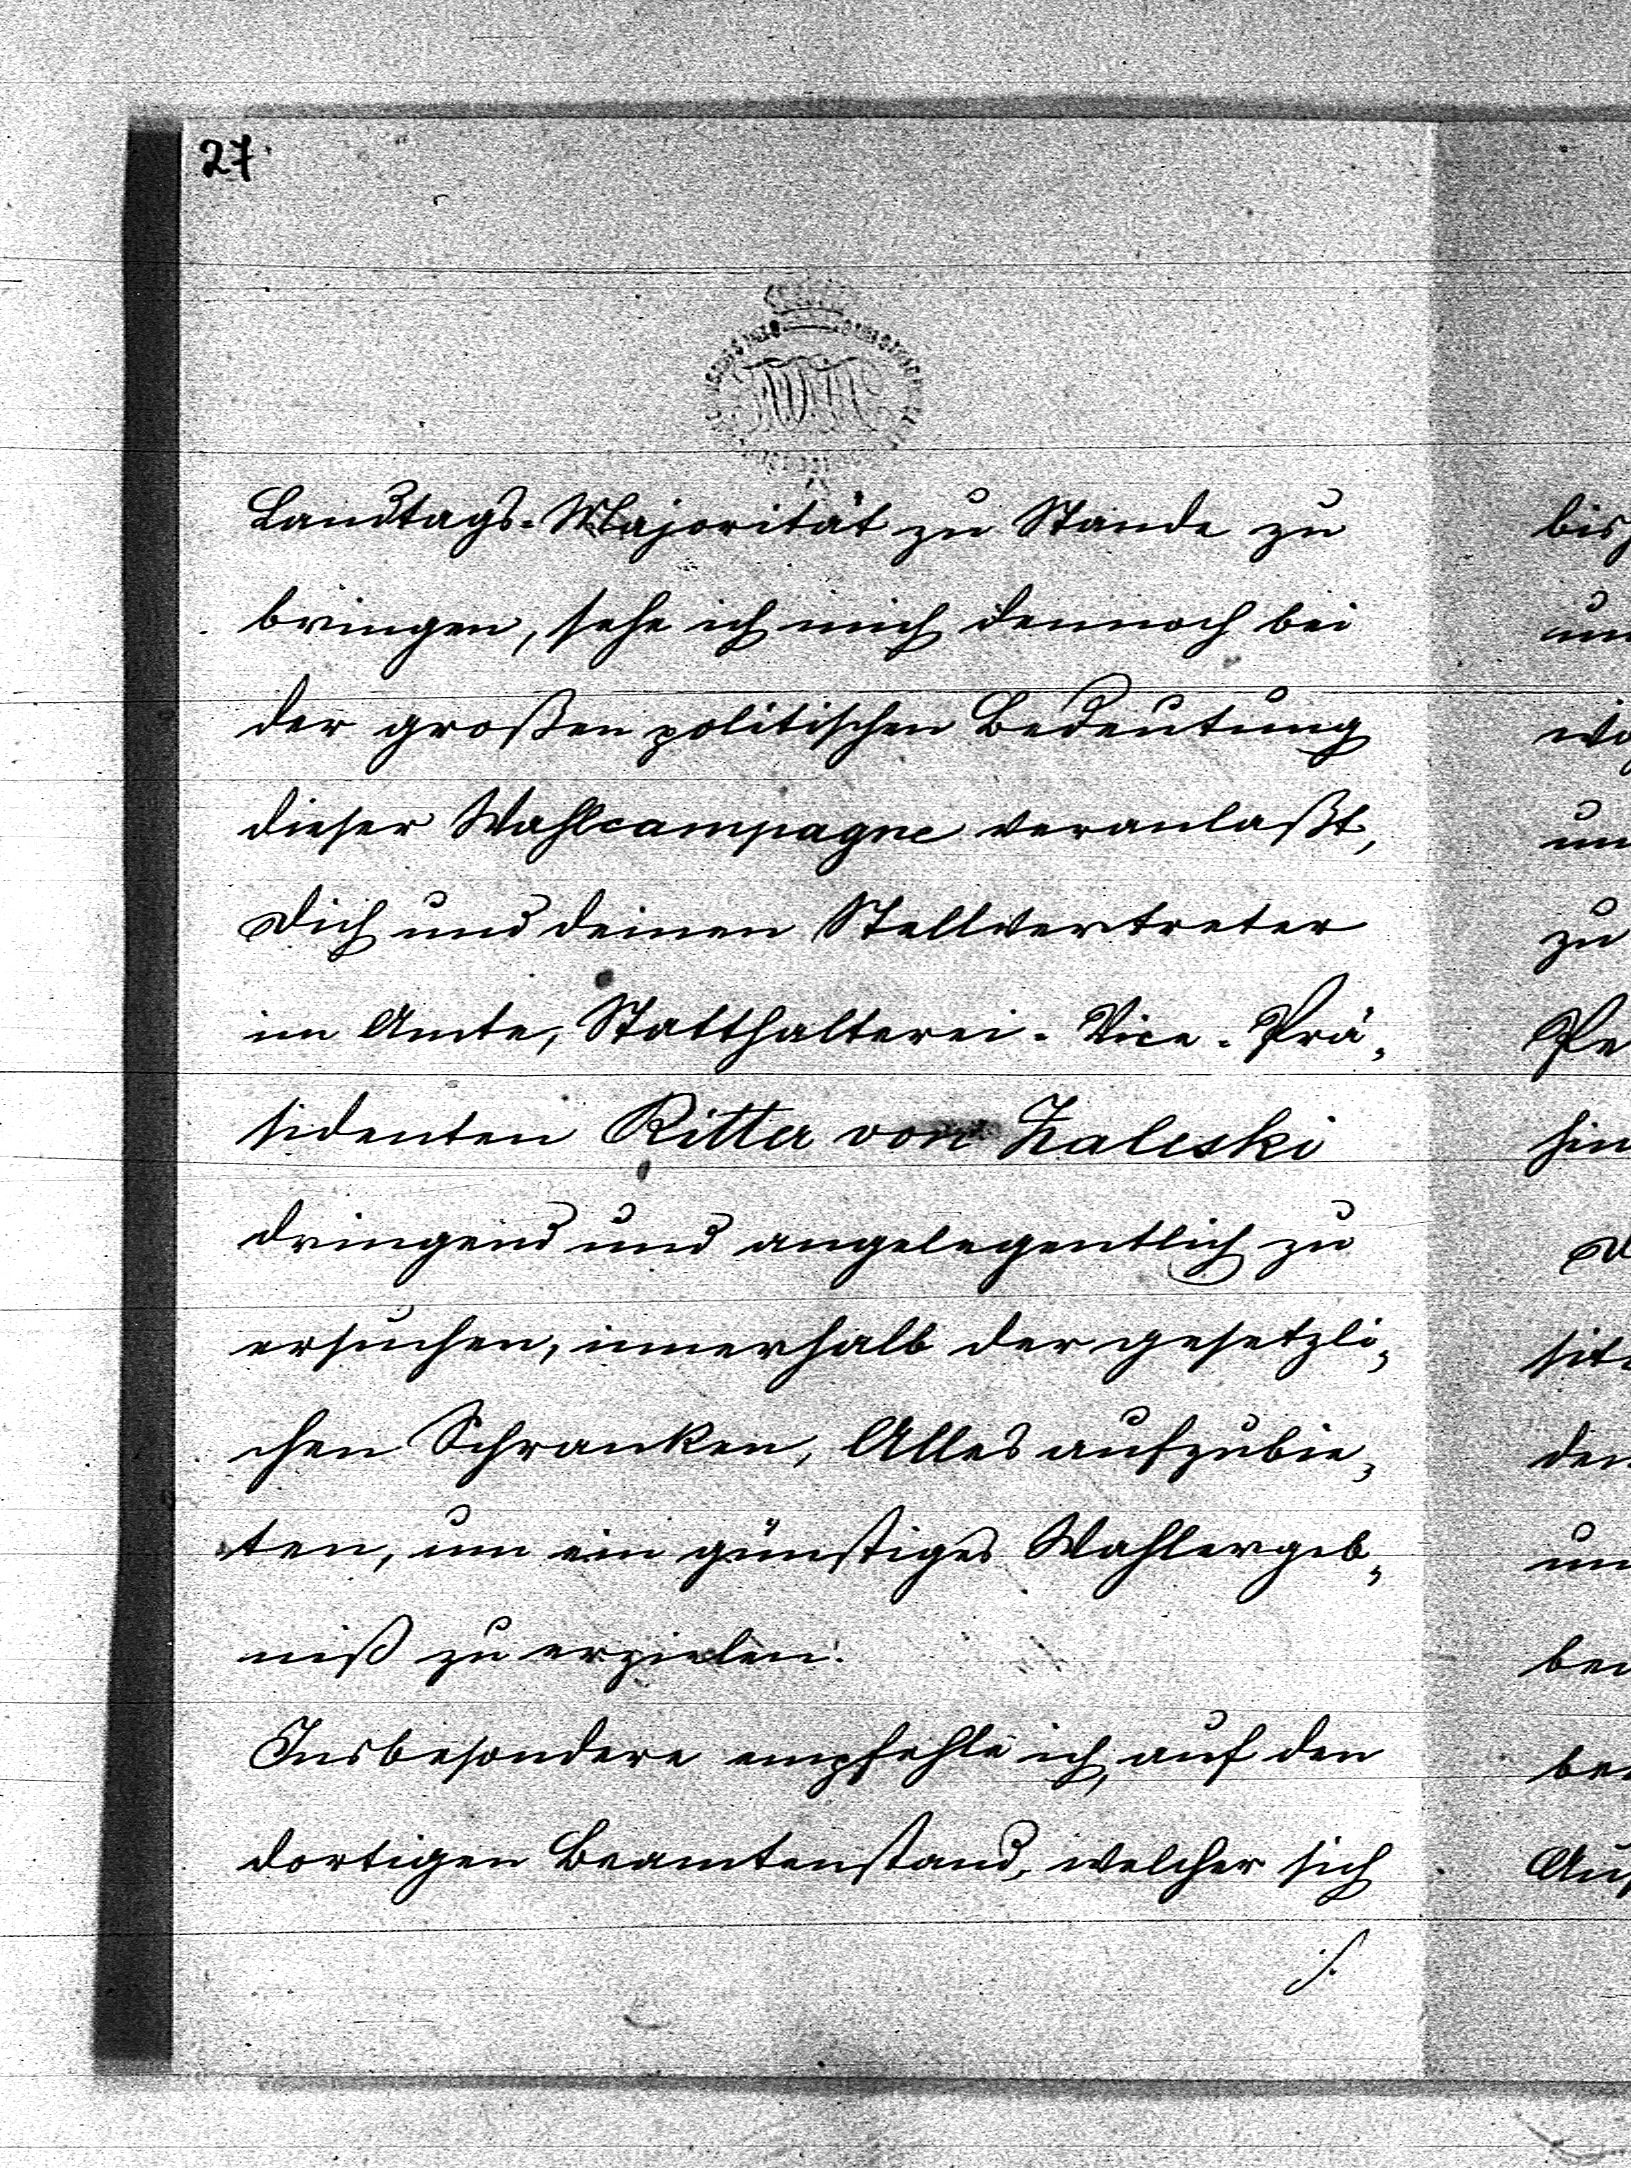 27
Landtags-Majorität zu Stande zu
bringen, sehe ich mich dennoch bei
der großen politischen Bedeutung
dieser Wahlcampagne veranlaßt,
Dich und deinen Stellvertreter
im Amte, Statthalterei-Vice-Prä-
sidenten Ritter von Zaleski
dringend und angelegentlich zu
ersuchen, innerhalb der gesetzli-
chen Schranken, Alles aufzubie-
ten, um ein günstiges Wahlergeb-
niß zu erzielen.
Insbesondere empfehle ich, auf den
dortigen Beamtenstand, welcher sich
./.